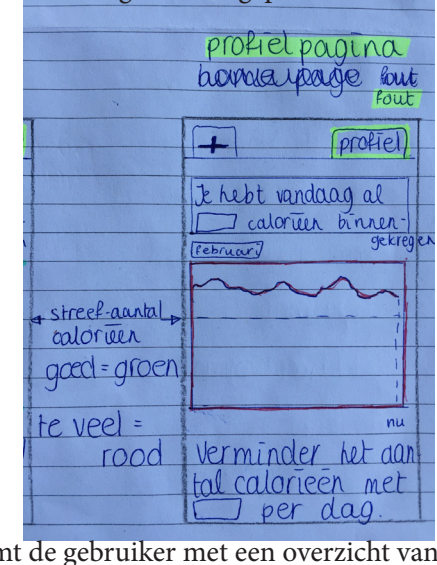 profiel pagina
fout
fout
+
profiel
Je hebt vandaag al
calorieën binnen-
gekregen
februari
streef-aantal
calorieën
goed = groen
te veel =
rood
nu
Verminder het aan
tal calorieën met
per dag.
mt de gebruiker met een overzicht van